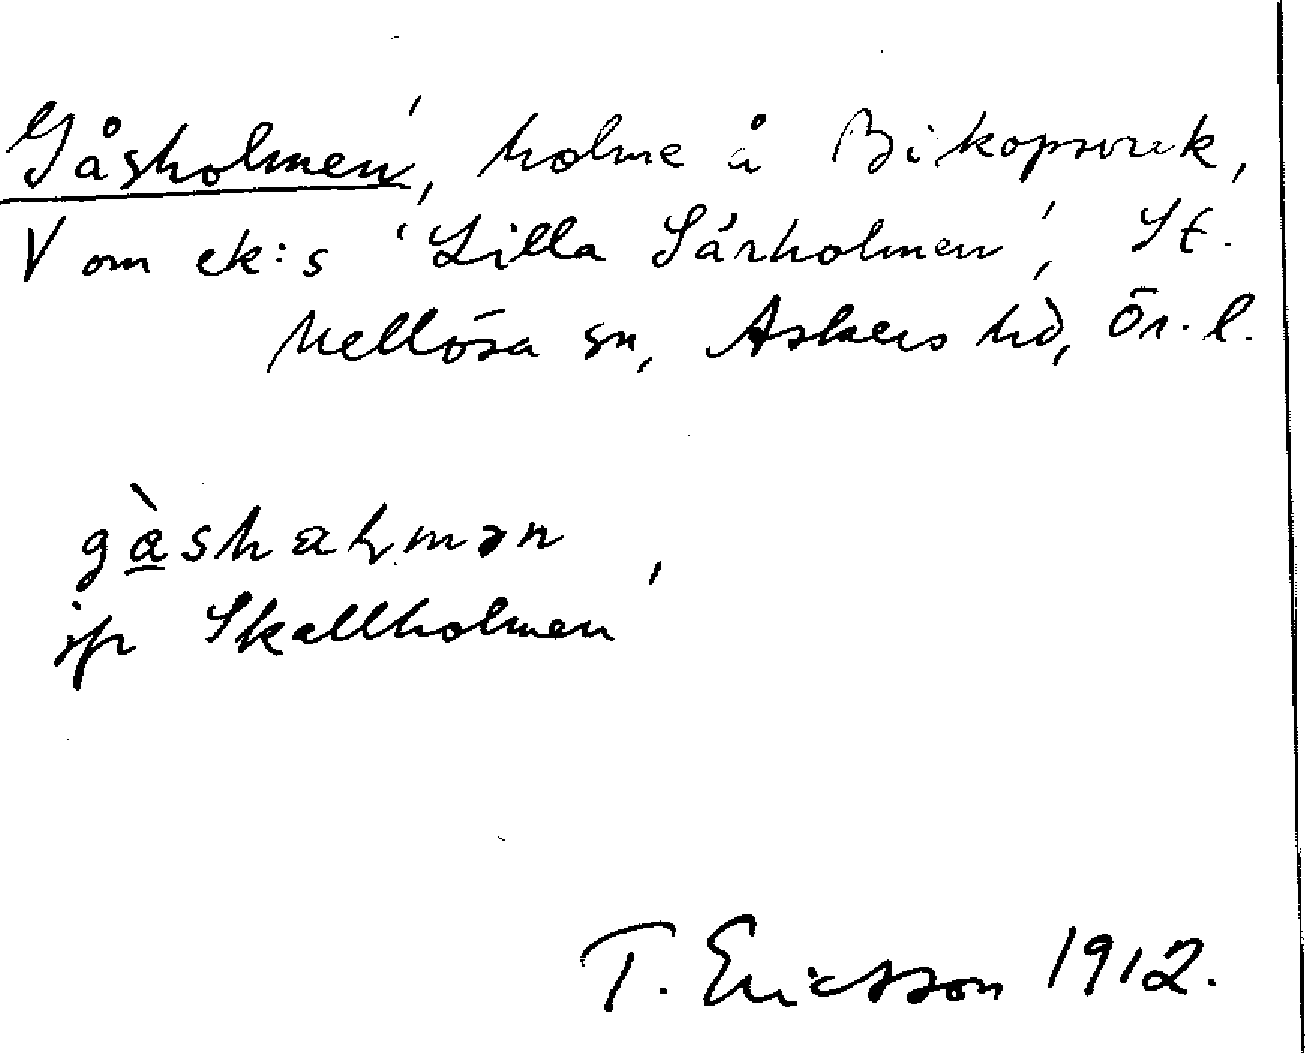 Gåsholmen, holme å Bikopsvrek,
V om ek:s 'Lilla Sårholmen', St.
Mellösa sn, Askers hd, Ör. l.
gåshaɫmən,
jfr Skallholmen
T. Ericsson 1912.